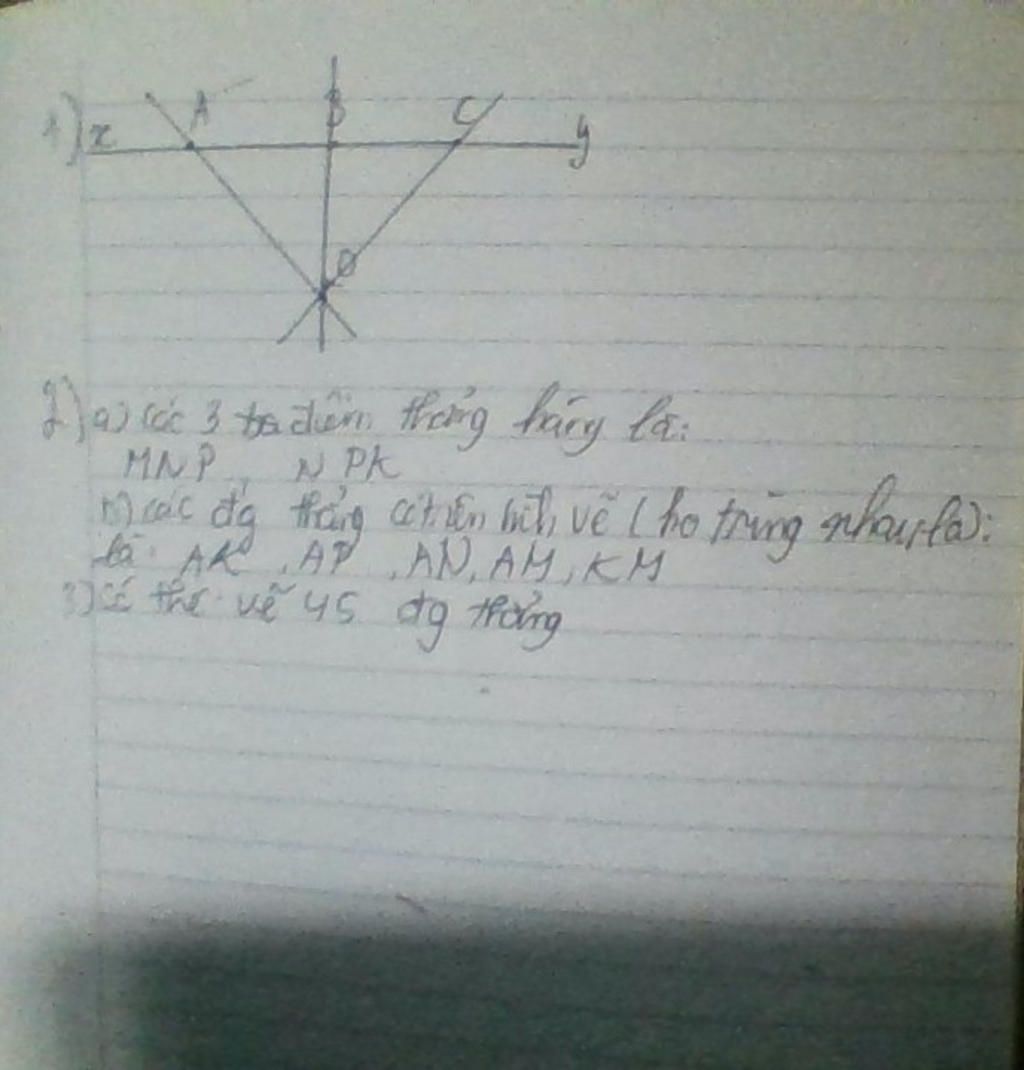 1) x A B C y
O
2) a) các 3 điểm thẳng hàng là:
MNP, N PK
b) các đg thẳng có trên hình vẽ (ko trùng nhau) là:
là: AK, AP, AN, AM, KM
3) có thể vẽ 45 đg thẳng